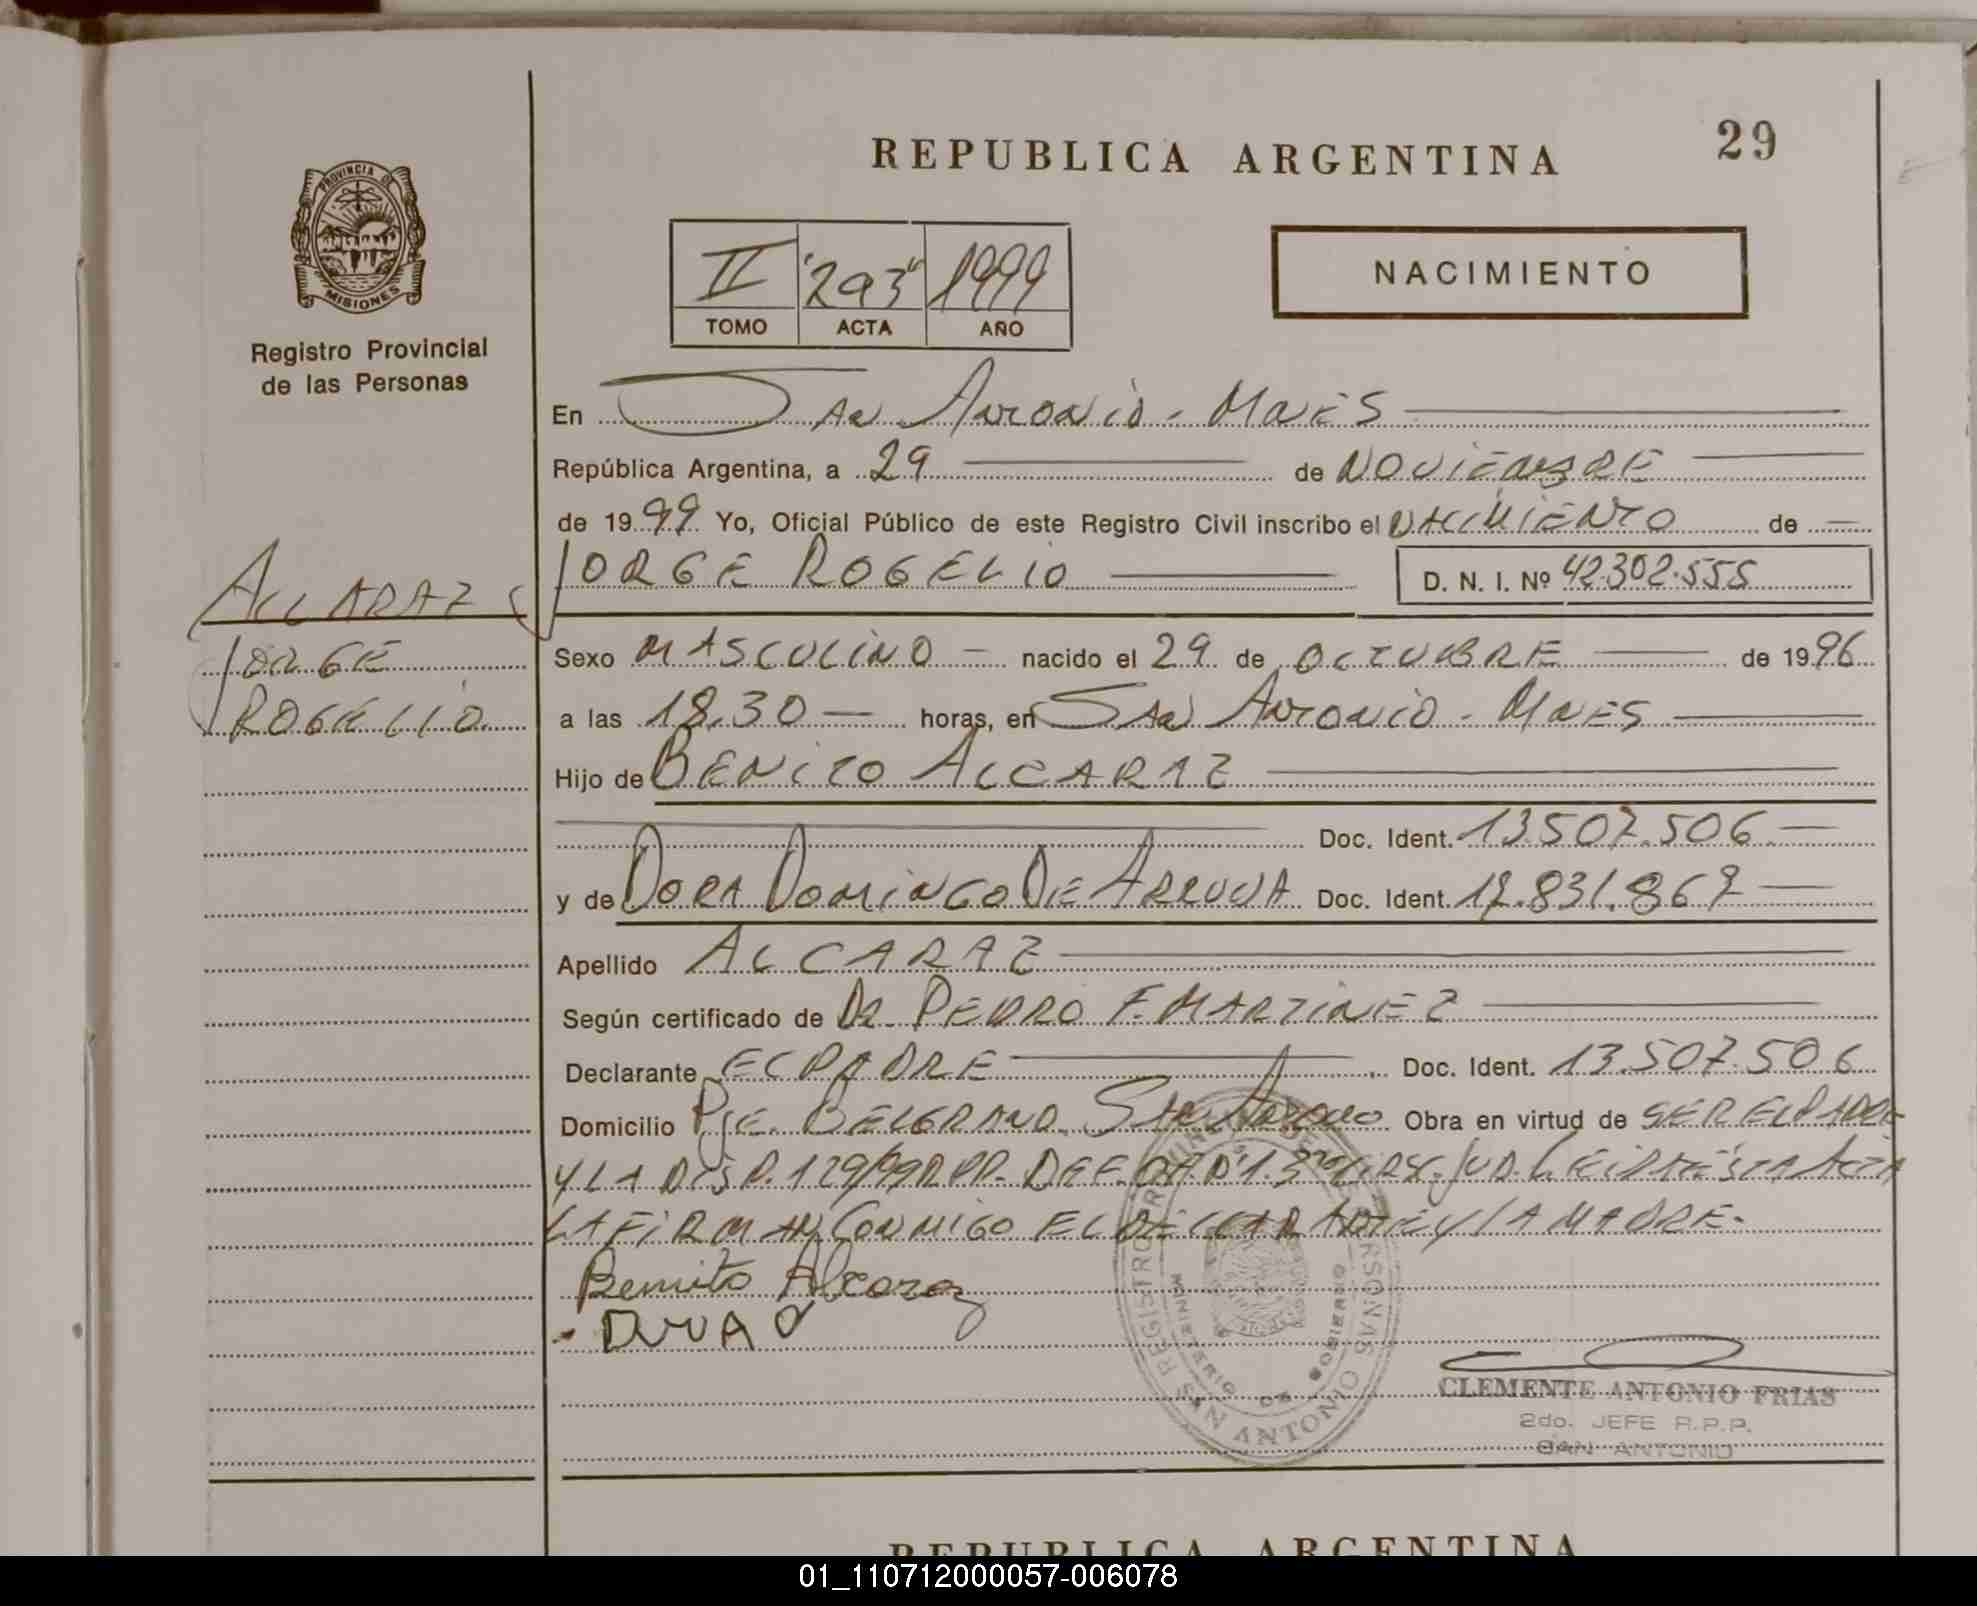 29
REPUBLICA ARGENTINA
PROVINCIA DE
MISIONES
Registro Provincial
de las Personas
II "293" 1999
TOMO ACTA AÑO
NACIMIENTO
En San Antonio - Mnes
República Argentina, a 29 de NOVIEMBRE
de 1999 Yo, Oficial Público de este Registro Civil inscribo el NACIMIENTO de
JORGE ROGELIO D. N. I. Nº 42.302.555
ALCARAZ
JORGE
ROGELIO
Sexo MASCULINO nacido el 29 de OCTUBRE de 1996
a las 18.30 horas, en San Antonio - Mnes
Hijo de BENITO ALCARAZ
Doc. Ident. 13.507.506
y de DORA DOMINGO DE ARRUDA Doc. Ident.
Apellido ALCARAZ
Según certificado de Dr. PEDRO F. MARTINEZ
Declarante EL PADRE Doc. Ident. 13.507.506
Domicilio Pje. BELGRANO San Antonio Obra en virtud de SER EL PADRE
Y LA DISP. 129/99 RPP. DEF. OF. Nº1. 3ra CIRSC. JUD. LEIDA ESTA ACTA
LA FIRMAN CONMIGO EL DECLARANTE Y LA MADRE.
Benito Alcaraz
REGISTRO PERSONAS
MINISTERIO DE GOBIERNO
SAN ANTONIO
CLEMENTE ANTONIO FRIAS
2do. JEFE R.P.P.
SAN ANTONIO
REPUBLICA ARGENTINA
01_110712000057-006078